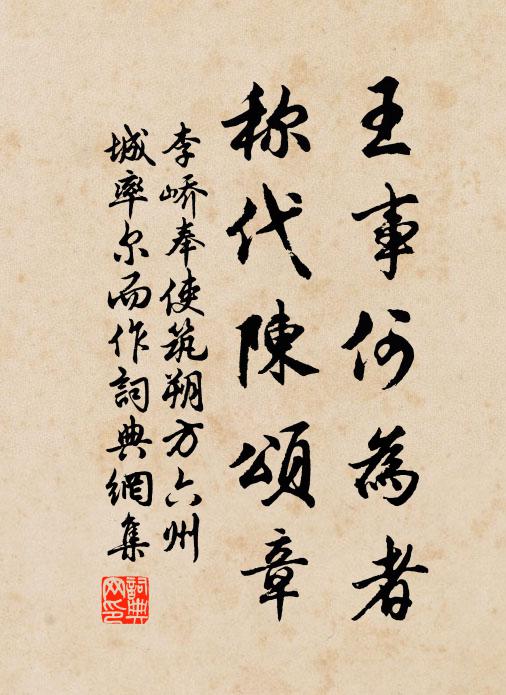 王事何為者
称代陳頌章
李峤奉使筑朔方六州
城率尔而作詞典網集
詞典網印